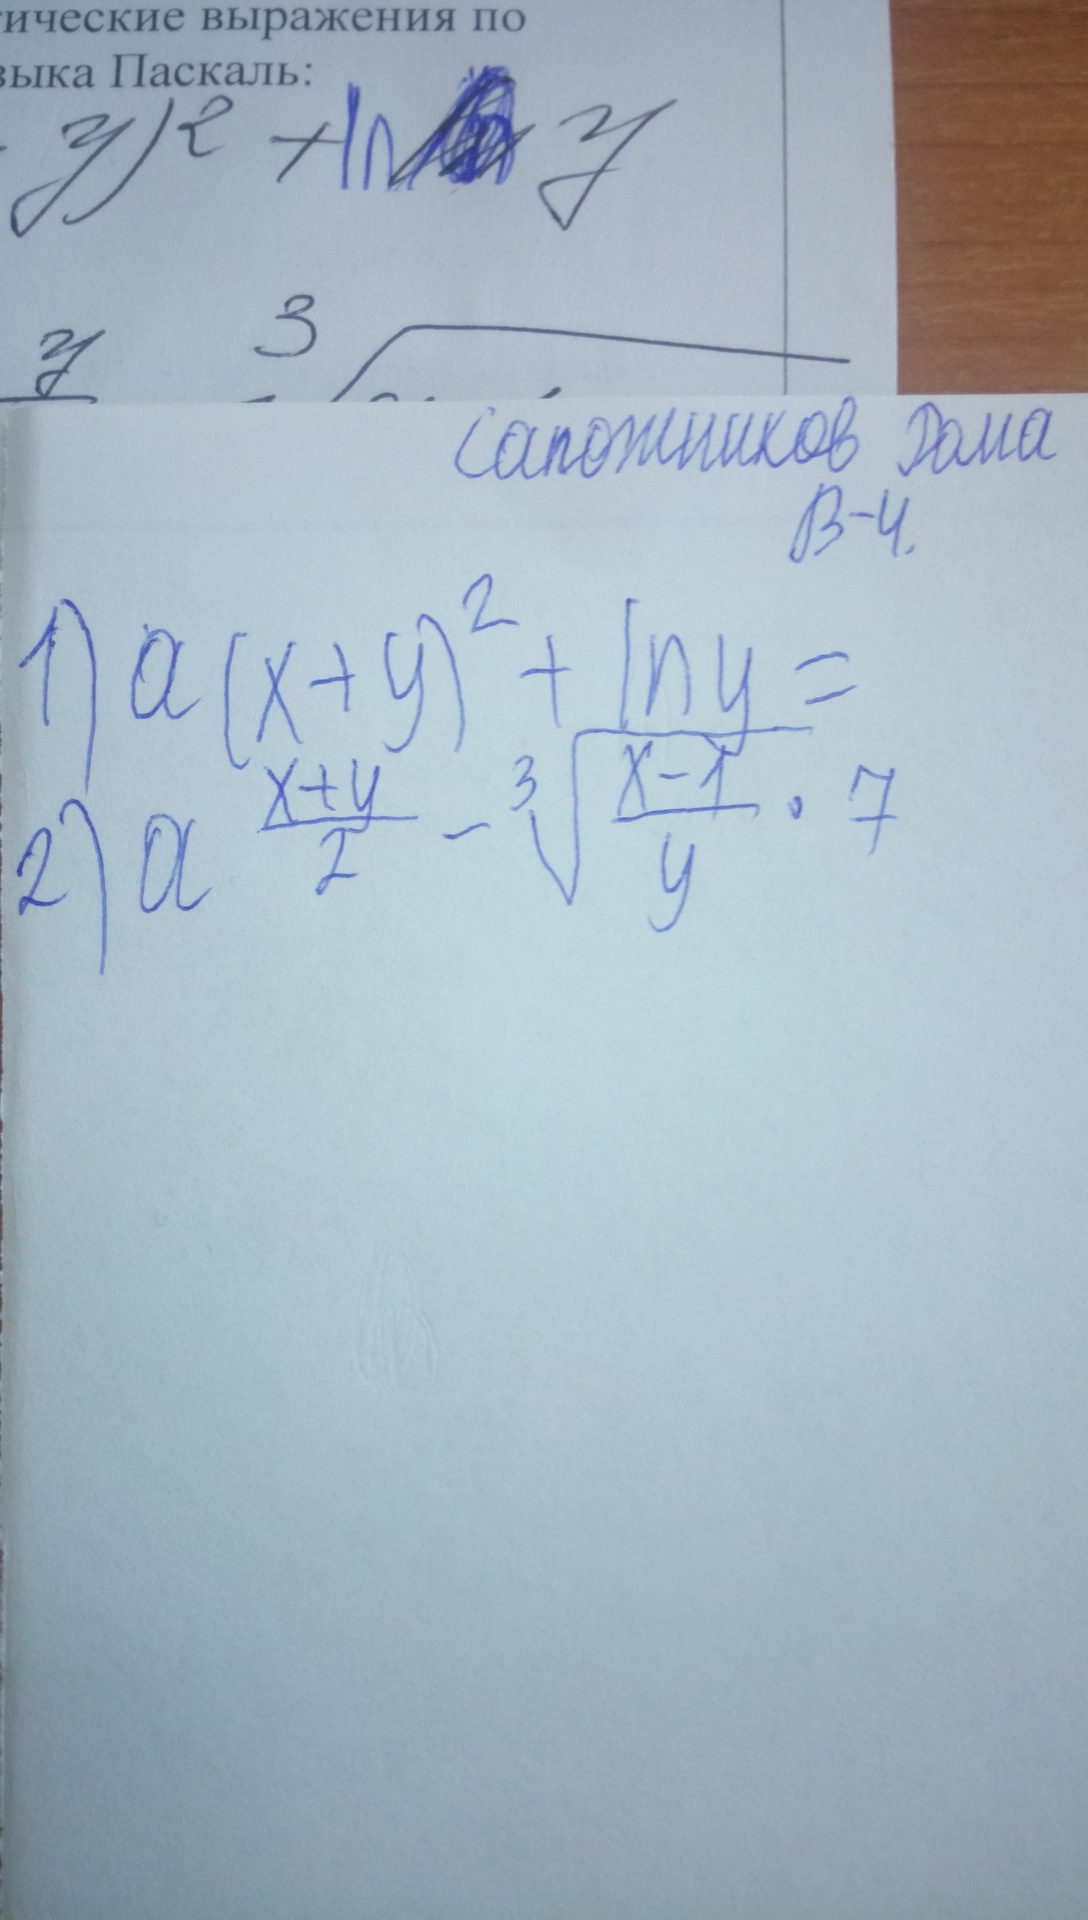 тические выражения по
зыка Паскаль:
y)² + ln y
y 3√
Сапожников Дома
В-4.
1) a(x+y)² + ln y =
2) a x+y/2 - ³√x-1/y · 7